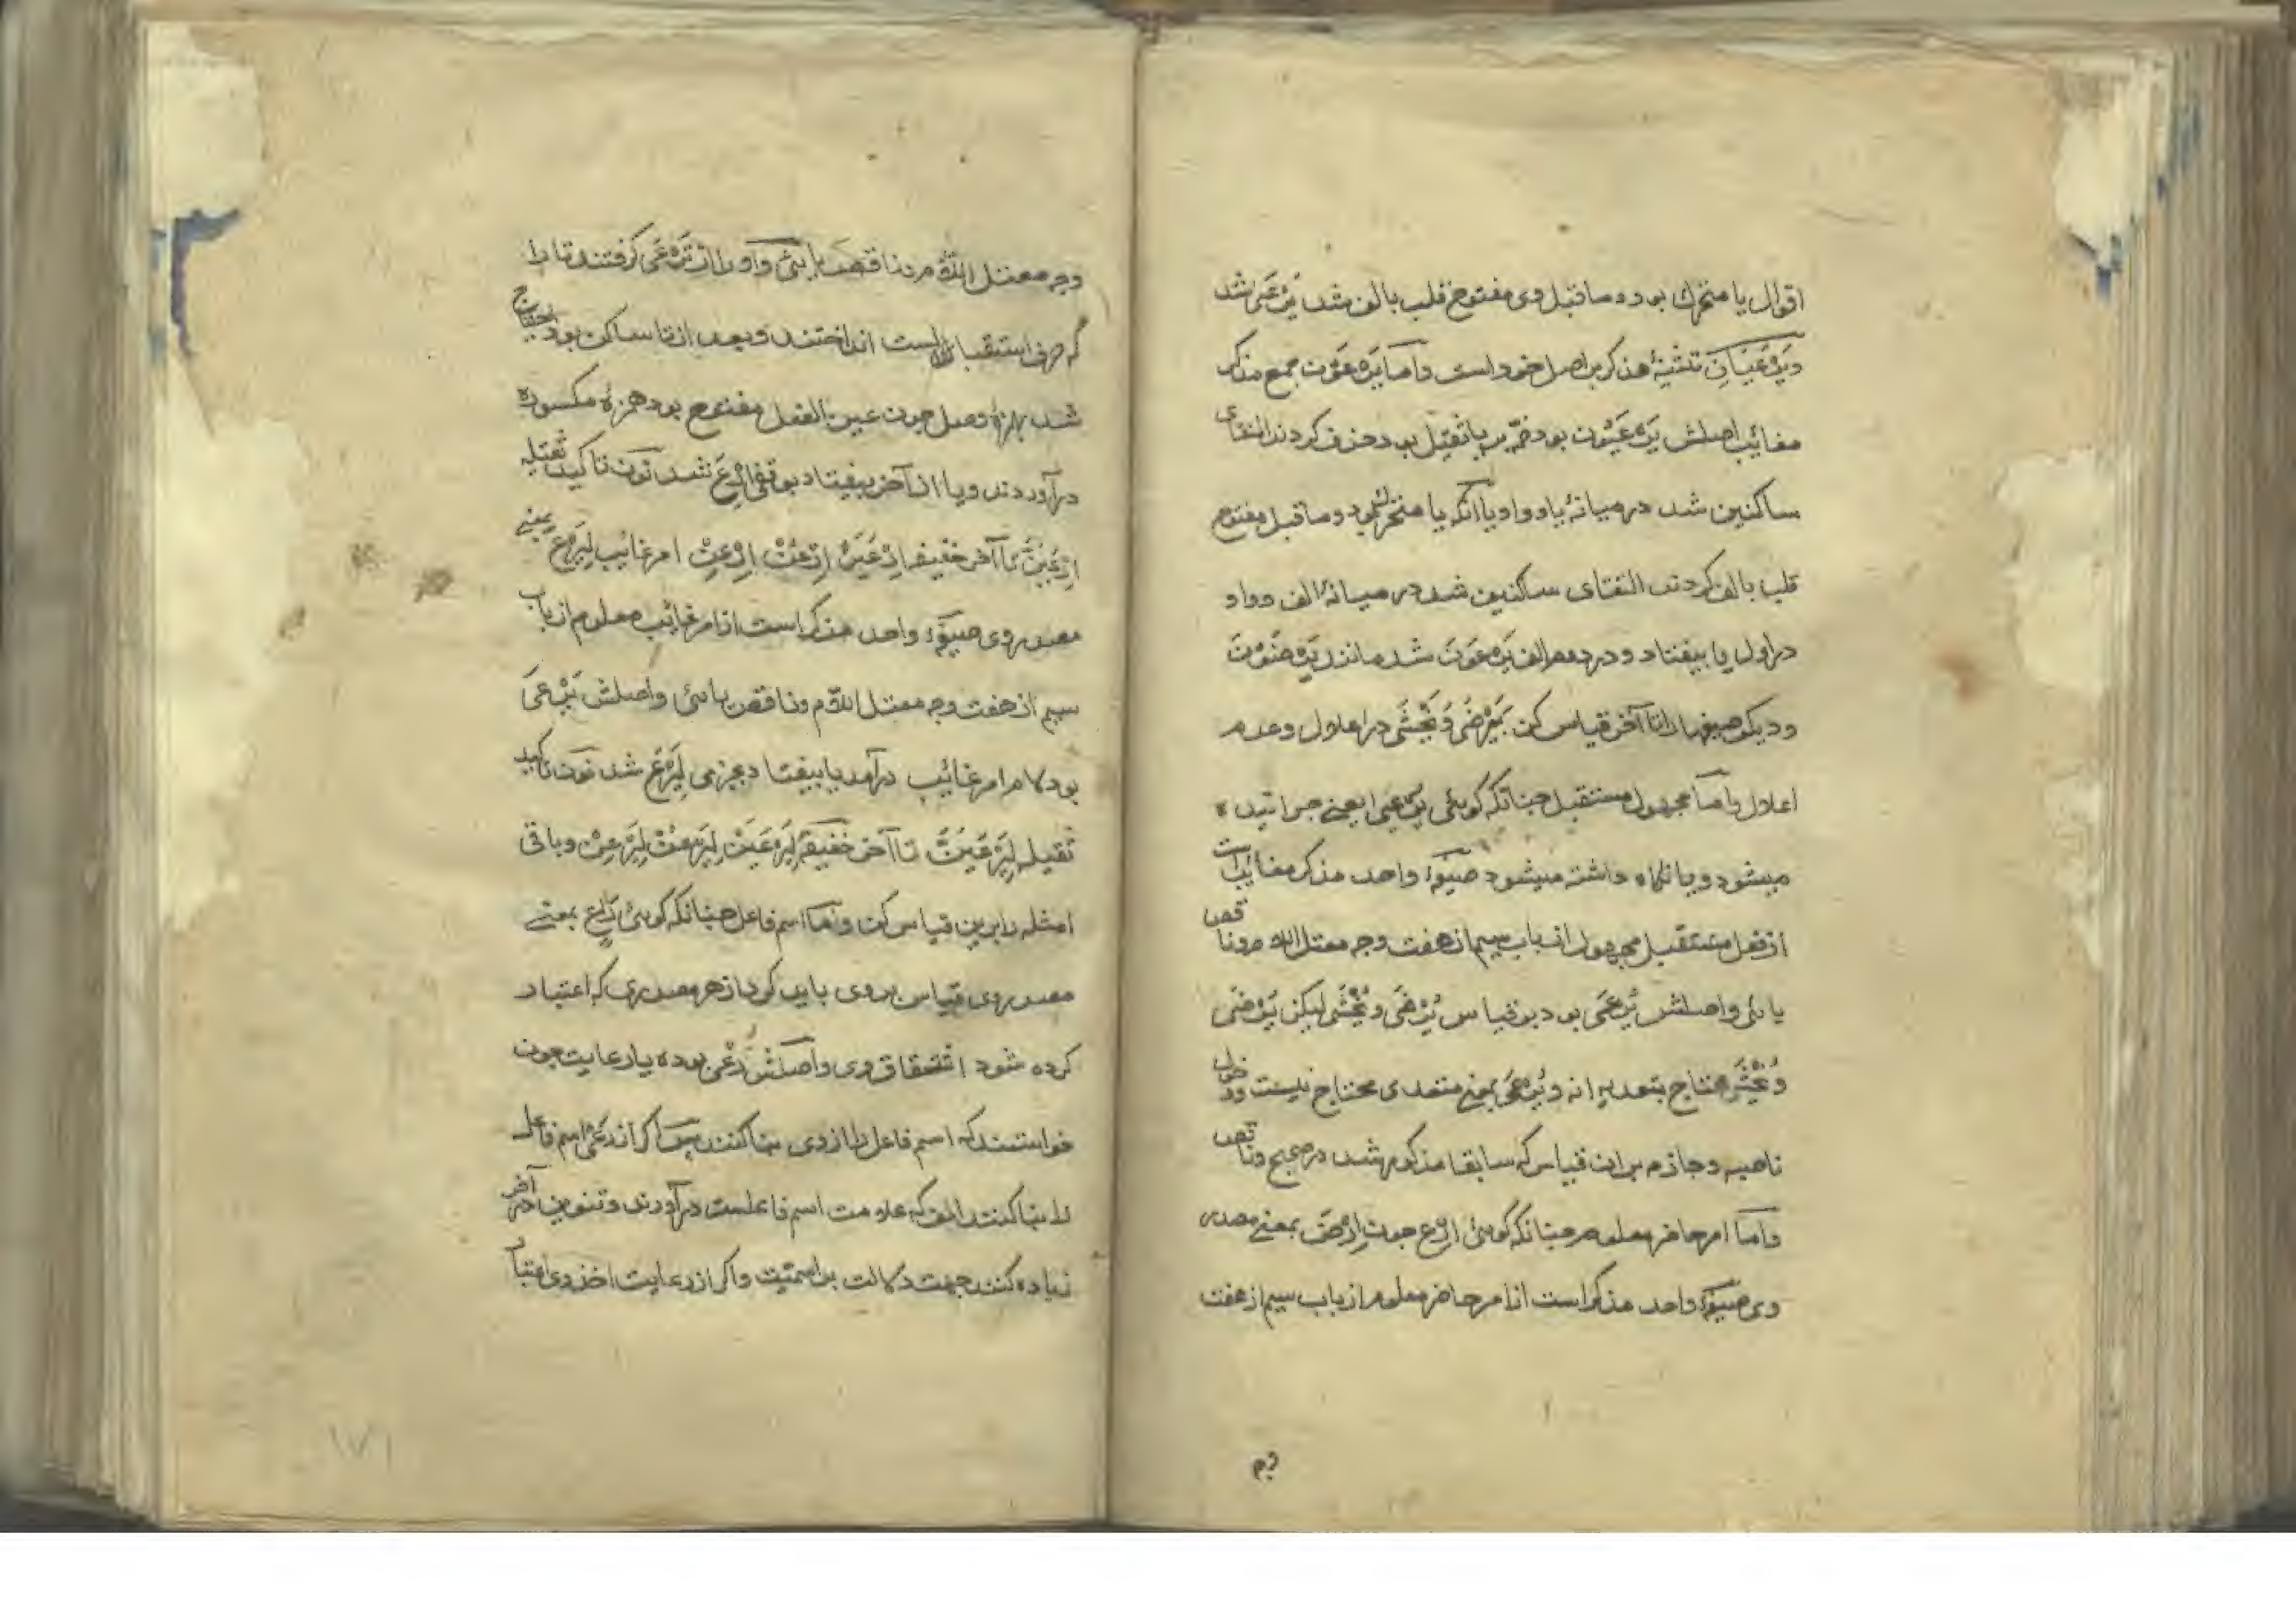 اقوال یا متحرک بود و ماقبل وی مفتوح قلب بالف شد یرعی شد
و یرعیان تثنیهٔ مذکر بر اصل خود است و اما یرعون جمع مذکر
مغائب اصلش یرعیون بود ضمه بر یا ثقیل بود حذف کردند التقای
ساکنین شد در میانهٔ یا و واو یا آنکه یا متحرک بود و ماقبل مفتوح
قلب بالف کردند التقای ساکنین شد در میانهٔ الف و واو
در اول یا بیفتاد و در دوم الف یرعون شد مانند یرضون
و دیگر صیغها را تا آخر قیاس کن بیرضی و یخشی در اعلال و عدم
اعلال و اما مجهول مستقبل چنانکه گوئی یرعی یعنی چرانیده
میشود و یا نگاه داشته میشود صیغهٔ واحد مذکر مغائب است
از فعل مستقبل مجهول از باب سیم از هفت وجه معتل اللام و ناقص
یائی و اصلش یرعی بود بر قیاس یرضی و یخشی لیکن یرضی
و یخشی محتاج بتعدیه اند و یرعی بمعنی متعدی محتاج نیست و دخول
ناصبه و جازم بر آن قیاس که سابقا مذکور شد در صحیح و ناقص
و اما امر حاضر معلوم چنانکه گوئی ارع چون ارض بمعنی مصدر
وی صیغهٔ واحد مذکر است از امر حاضر معلوم از باب سیم از هفت
وجه معتل اللام و ناقص یائی و او را از ترعی گرفتند تا را
که حرف استقبال است انداختند و بعد از تا ساکن بود احتیاج
شد بهمزهٔ وصل چون عین الفعل مفتوح بود همزهٔ مکسوره
در آوردند و یا از آخر بیفتاد بوقفی ارع شد نون تاکید ثقیله
ارعین تا آخر خفیفه ارعین ارعن ارعن امر غائب لیرع بمعنی
مصدر وی صیغهٔ واحد مذکر است از امر غائب معلوم از باب
سیم از هفت وجه معتل اللام و ناقص یائی و اصلش یرعی
بود لام امر غائب درآمد یا بیفتاد بجزمی لیرع شد نون تاکید
ثقیله لیرعین تا آخر خفیفه لیرعین لیرعن لیرعن و باقی
امثله را برین قیاس کن و اما اسم فاعل چنانکه گوئی راع بمعنی
مصدر وی قیاس بر وی باید کرد از هر مصدری که اعتبار
کرده شود اشتقاق وی و اصلش رعی بوده یا رعایت چون
خواستند که اسم فاعل را از وی بنا کنند پس اگر از رعی اسم فاعل
را بنا کنند الف که علامت اسم فاعلست درآورند و تنوین در آخر
زیاده کنند جهت دلالت بر اسمیت و اگر از رعایت اخذ وی اعتبار
وجه
۱۷۱